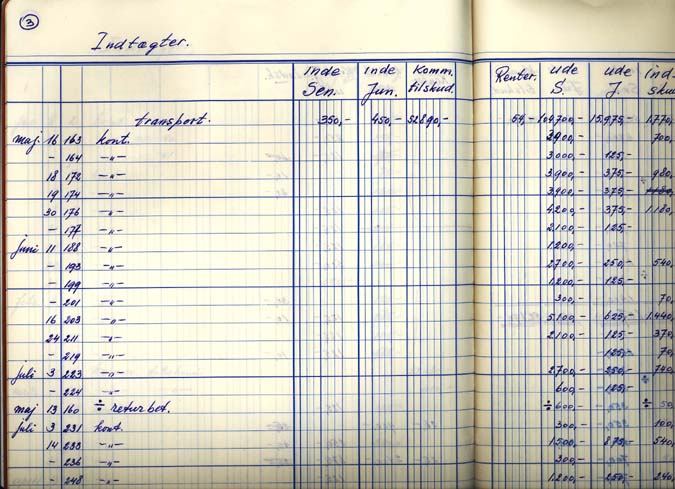 3
Indtægter.
Inde Sen. Inde Jun. Komm. tilskud. Renter. ude S. ude J. ind- skud
transport. 350,- 450,- 52890,- 54,- 104,700,- 15,975,- 1.770,-
maj. 16 163 kont. 3900,- 700,-
- 164 -"- 3.000,- 125,-
18 172 -"- 3,900,- 375,- 980,-
19 174 -"- 3.900,- 375,-
30 176 -"- 4200,- 375,- 1.180,-
- 177 -"- 2.100,- 125,-
juni 11 188 -"- 1.200,-
- 193 -"- 2700,- 250,- 540,-
- 199 -"- 1.200,- 125,- ÷
- 201 -"- 300,- 70,-
16 203 -"- 5,100,- 625,- 1.440,-
24 211 -"- 2100,- 125,- 370,-
- 219 -"- 125,- 70,-
juli 3 223 -"- 2,700,- 250,- 740,-
- 224 -"- 600,- 125,- ÷
maj 13 160 ÷ returbet. ÷ 600,- ÷ 50,-
juli 3 231 kont. 300,- 100,-
14 233 -"- 1500,- 875,- 540,-
- 236 -"- 300,-
- 248 -"- 1.200,- 250,- 240,-